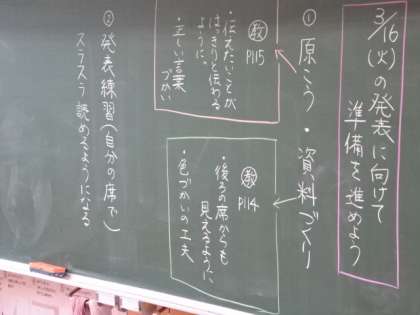 3/16(火)の発表に向けて
準備を進めよう
① 原こう・資料づくり
教
P115
・伝えたいことが
はっきりと伝わる
ように。
・正しい言葉
づかい
教
P114
・後ろの席からも
見えるように
・色づかいの工夫
② 発表練習(自分の席で)
スラスラ読めるようになる